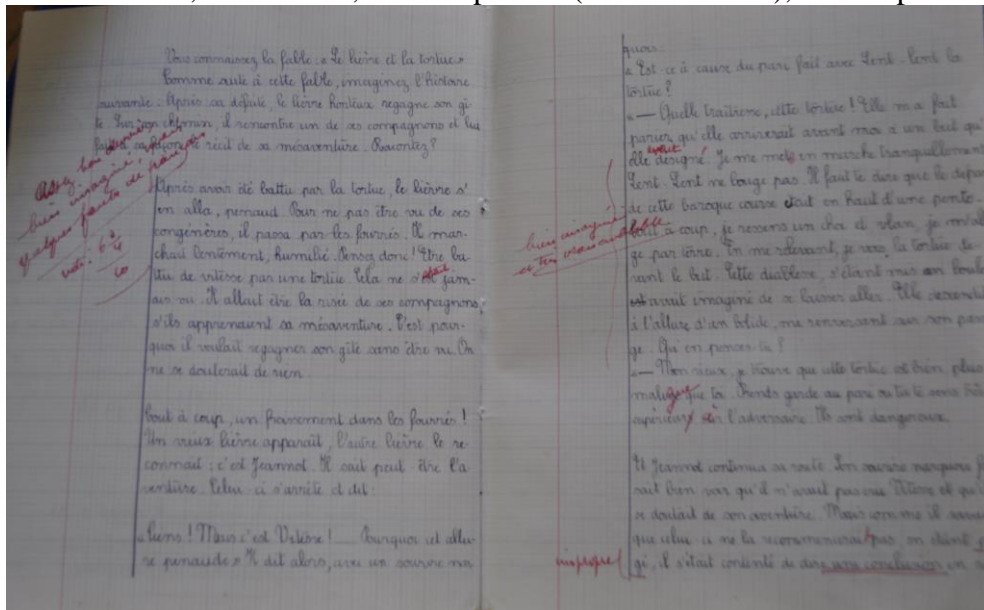 Vous connaissez la fable : « Le lièvre et la tortue »
Comme suite à cette fable, imaginez l'histoire
suivante : Après sa défaite, le lièvre honteux regagne son gî-
te. Sur son chemin, il rencontre un de ses compagnons et lui
fait à sa façon le récit de sa mésaventure. Racontez ?
Assez bon
bien imaginé,
quelques fautes de français
Après avoir été battu par la tortue, le lièvre s'
en alla, penaud. Pour ne pas être vu de ses
congénères, il passa par les fourrés. Il mar-
chait lentement, humilié. Pensez donc ! Être ba-
ttu de vitesse par une tortue. Cela ne s'était jam-
ais vu. Il allait être la risée de ses compagnons,
s'ils apprenaient sa mésaventure. C'est pour-
quoi il voulait regagner son gîte sans être vu. On
ne se douterait de rien.
Tout à coup, un froissement dans les fourrés !
Un vieux lièvre apparaît, l'autre lièvre le re-
connaît : c'est Jeannot. Il sait peut-être l'a-
venture. Celui-ci s'arrête et dit :
« Tiens ! Mais c'est Vitesse ! Pourquoi cet allu-
re penaude » Il dit alors, avec un sourire na
quois.
« Est-ce à cause du pari fait avec Lent-Lent la
tortue ?
« — Quelle traîtrise, cette tortue ! Elle m'a fait
parier qu'elle arriverait avant moi à un but qu'
elle avait désigné. Je me mets en marche tranquillement
Lent-Lent ne bouge pas. Il faut te dire que le dépar
de cette baroque course était en haut d'une pente.
Tout à coup, je ressens un choc et vlan, je m'al
ge par terre. En me relevant, je vois la tortue de-
vant le but. Cette diablesse, s'étant mis en boule
avait imaginé de se laisser aller. Elle descendit
à l'allure d'un bolide, me renversant sur son passa
ge. Qu'en penses-tu ?
bien imaginé
et très vraisemblable
« — Mon vieux, je trouve que cette tortue est bien plus
maligne que toi. Prends garde au pari où tu te sens
supérieur à l'adversaire. Ils sont dangereux.
Et Jeannot continua sa route. Son sourire narquois
sait bien voir qu'il n'avait pas cru Vitesse et qu'
se doutait de son aventure. Mais comme il savait
que celui-ci ne la recommencerait pas,
impropre
gé, il s'était contenté de dire une conclusion en